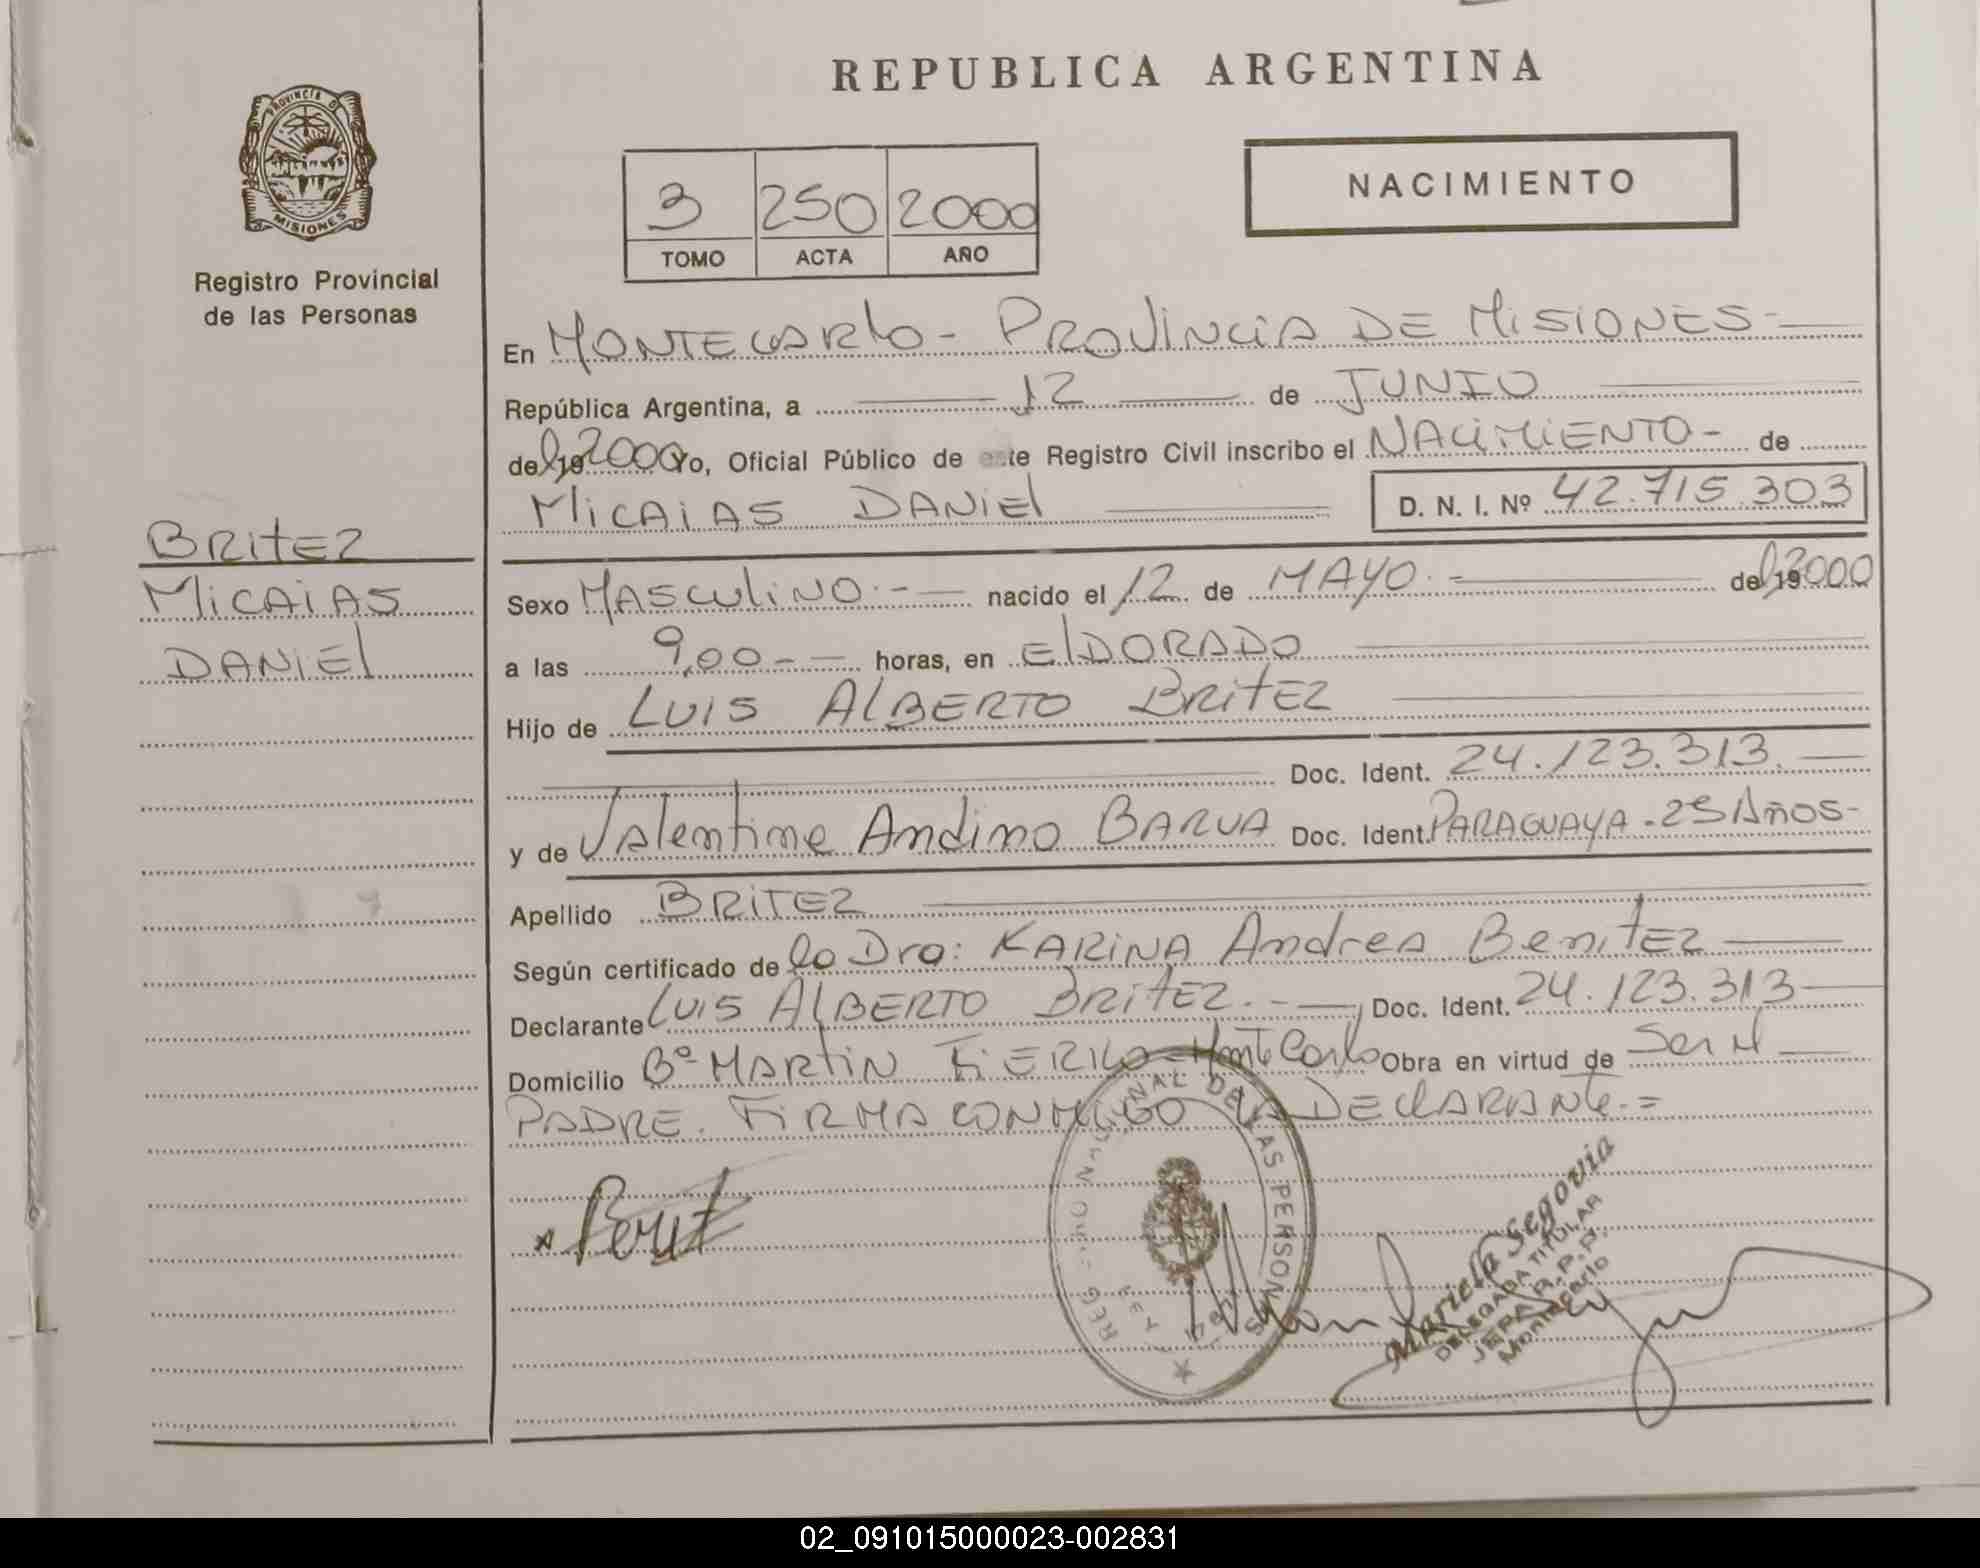 REPUBLICA ARGENTINA
PROVINCIA DE
MISIONES
Registro Provincial
de las Personas
3 250 2000
TOMO ACTA AÑO
NACIMIENTO
En MONTECARLO - PROVINCIA DE MISIONES -
República Argentina, a 12 de JUNIO
del 19 2000 Yo, Oficial Público de este Registro Civil inscribo el NACIMIENTO - de
MICAIAS DANIEL D. N. I. Nº 42.715.303
BRITEZ
MICAIAS
DANIEL
Sexo MASCULINO.- nacido el 12 de MAYO.- del 19 2000
a las 9,00-- horas, en ELDORADO
Hijo de LUIS ALBERTO BRITEZ
Doc. Ident. 24.123.313.
y de Valentine Andino BARUA Doc. Ident. PARAGUAYA - 25 Años-
Apellido BRITEZ
Según certificado de la Dra: KARINA Andrea BenitEZ
Declarante LUIS ALBERTO BRITEZ.- Doc. Ident. 24.123.313
Domicilio Bº MARTIN FIERRO - Monte Carlo Obra en virtud de Ser el
PADRE. FIRMA CONMIGO LA DECLARANTE.=
DE LAS PERSONAS
Mariela Segovia
DELEGADA TITULAR
Montecarlo
02_091015000023-002831